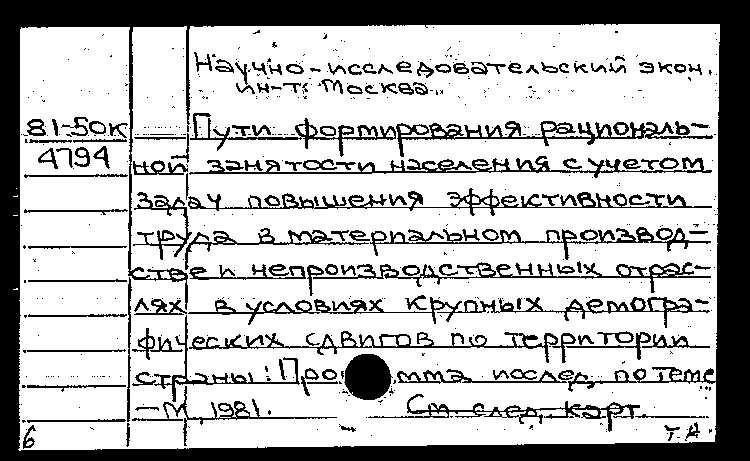 Научно-исследовательский экон.
ин-т. Москва.
81-50к Пути формирования рациональ-
4794 ной занятости населения с учетом
задач повышения эффективности
труда в материальном производ-
стве и непроизводственных отрас-
лях в условиях крупных демогра-
фических сдвигов по территории
страны: Про мма исслед. по теме
— М., 1981. См. след. карт.
6 Т.А.